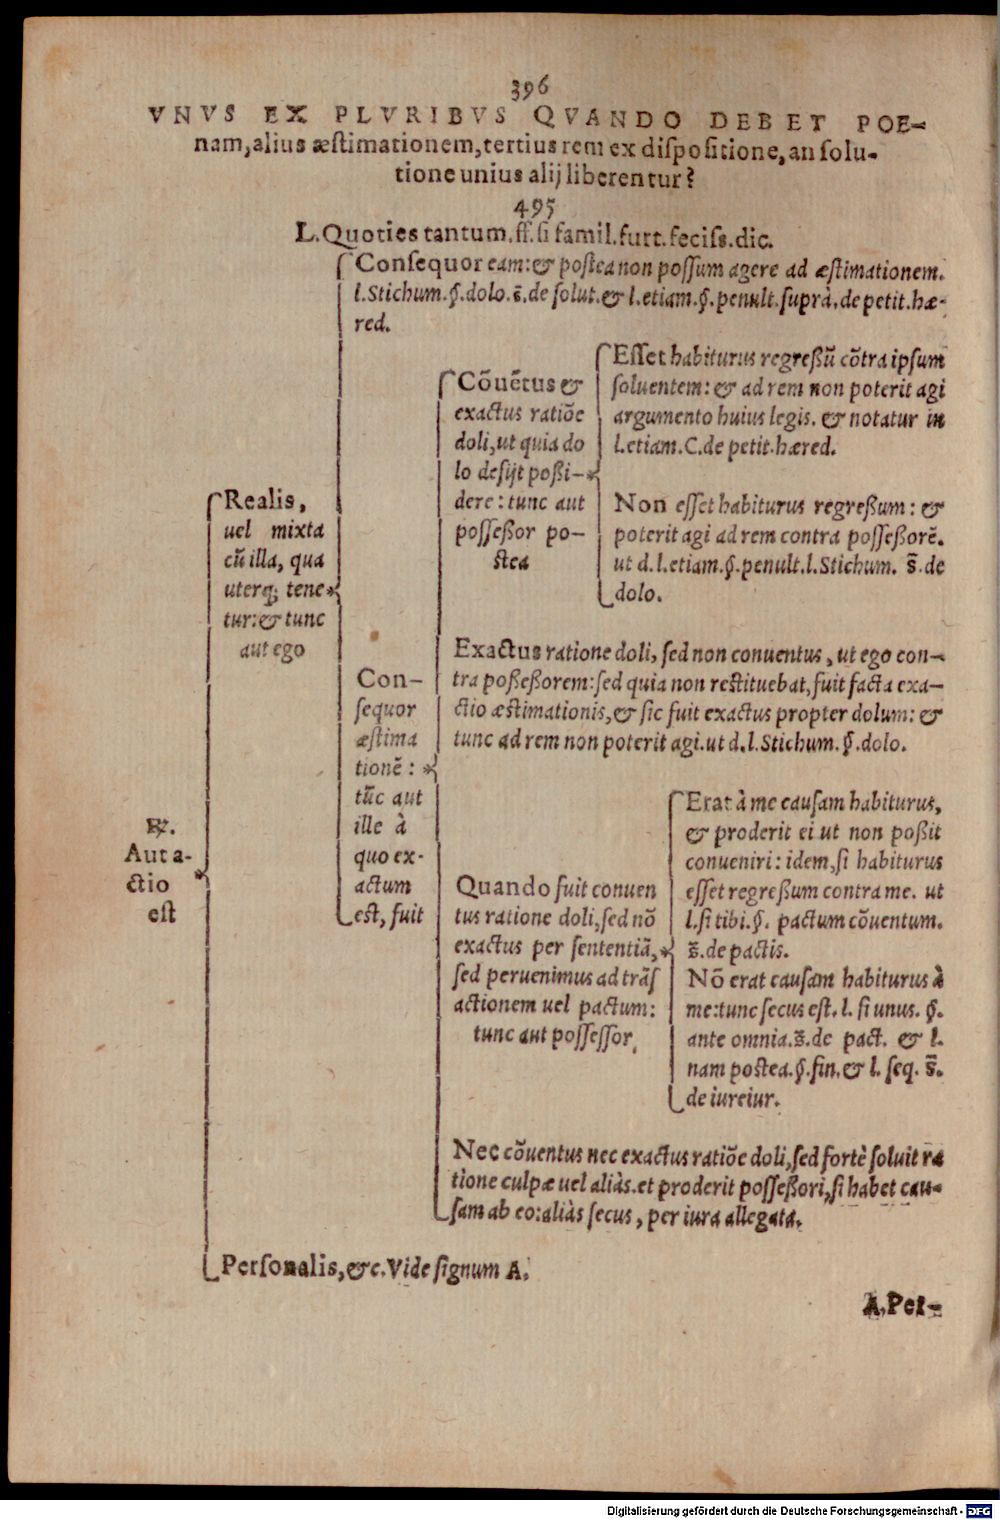 396
VNVS EX PLVRIBVS QVANDO DEBET POE-
nam, alius æstimationem, tertius rem ex dispositione, an solu-
tione unius alij liberentur?
495
L. Quoties tantum. ff. si famil. furt. feciss. dic.
℟.
Aut a-
ctio
est
Realis,
uel mixta
cũ illa, qua
uterq; tene
tur: & tunc
aut ego
Consequor eam: & postea non possum agere ad æstimationem.
l. Stichum. §. dolo. s̃. de solut. & l. etiam. §. penult. suprà, de petit. hæ-
red.
Con-
sequor
æstima
tionẽ:
tũc aut
ille à
quo ex-
actum
est, fuit
Cõuẽtus &
exactus ratiõe
doli, ut quia do
lo desijt poßi-
dere: tunc aut
possessor po-
stea
Esset habiturus regreßũ cõtra ipsum
soluentem: & ad rem non poterit agi
argumento huius legis. & notatur in
l. etiam. C. de petit. hæred.
Non esset habiturus regreßum: &
poterit agi ad rem contra posseßorẽ.
ut d. l. etiam. §. penult. l. Stichum. s̃. de
dolo.
Exactus ratione doli, sed non conuentus, ut ego con-
tra poßeßorem: sed quia non restituebat, fuit facta exa-
ctio æstimationis, & sic fuit exactus propter dolum: &
tunc ad rem non poterit agi. ut d. l. Stichum. §. dolo.
Quando fuit conuen
tus ratione doli, sed nõ
exactus per sententiã,
sed peruenimus ad trãs
actionem uel pactum:
tunc aut possessor
Erat à me causam habiturus,
& proderit ei ut non poßit
conueniri: idem, si habiturus
esset regreßum contra me. ut
l. si tibi. §. pactum cõuentum.
s̃. de pactis.
Nõ erat causam habiturus à
me: tunc secus est. l. si unus. §.
ante omnia. s̃. de pact. & l.
nam postea. §. fin. & l. seq. s̃.
de iureiur.
Nec cõuentus nec exactus ratiõe doli, sed fortè soluit ra
tione culpæ uel aliàs. et proderit posseßori, si habet cau-
sam ab eo: aliàs secus, per iura allegata.
Personalis, &c. Vide signum A.
A. Per-
Digitalisierung gefördert durch die Deutsche Forschungsgemeinschaft - DFG